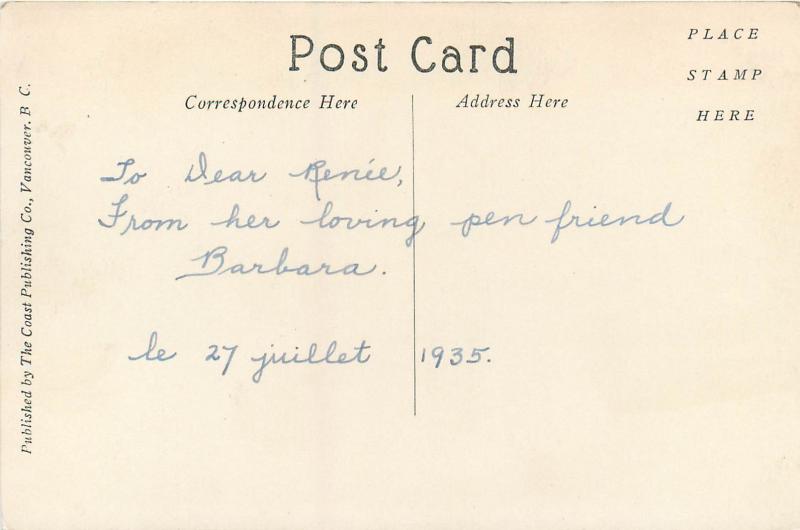 Post Card
PLACE
STAMP
HERE
Correspondence Here
Address Here
To Dear Renée,
From her loving pen friend
Barbara.
le 27 juillet 1935.
Published by The Coast Publishing Co., Vancouver, B C.